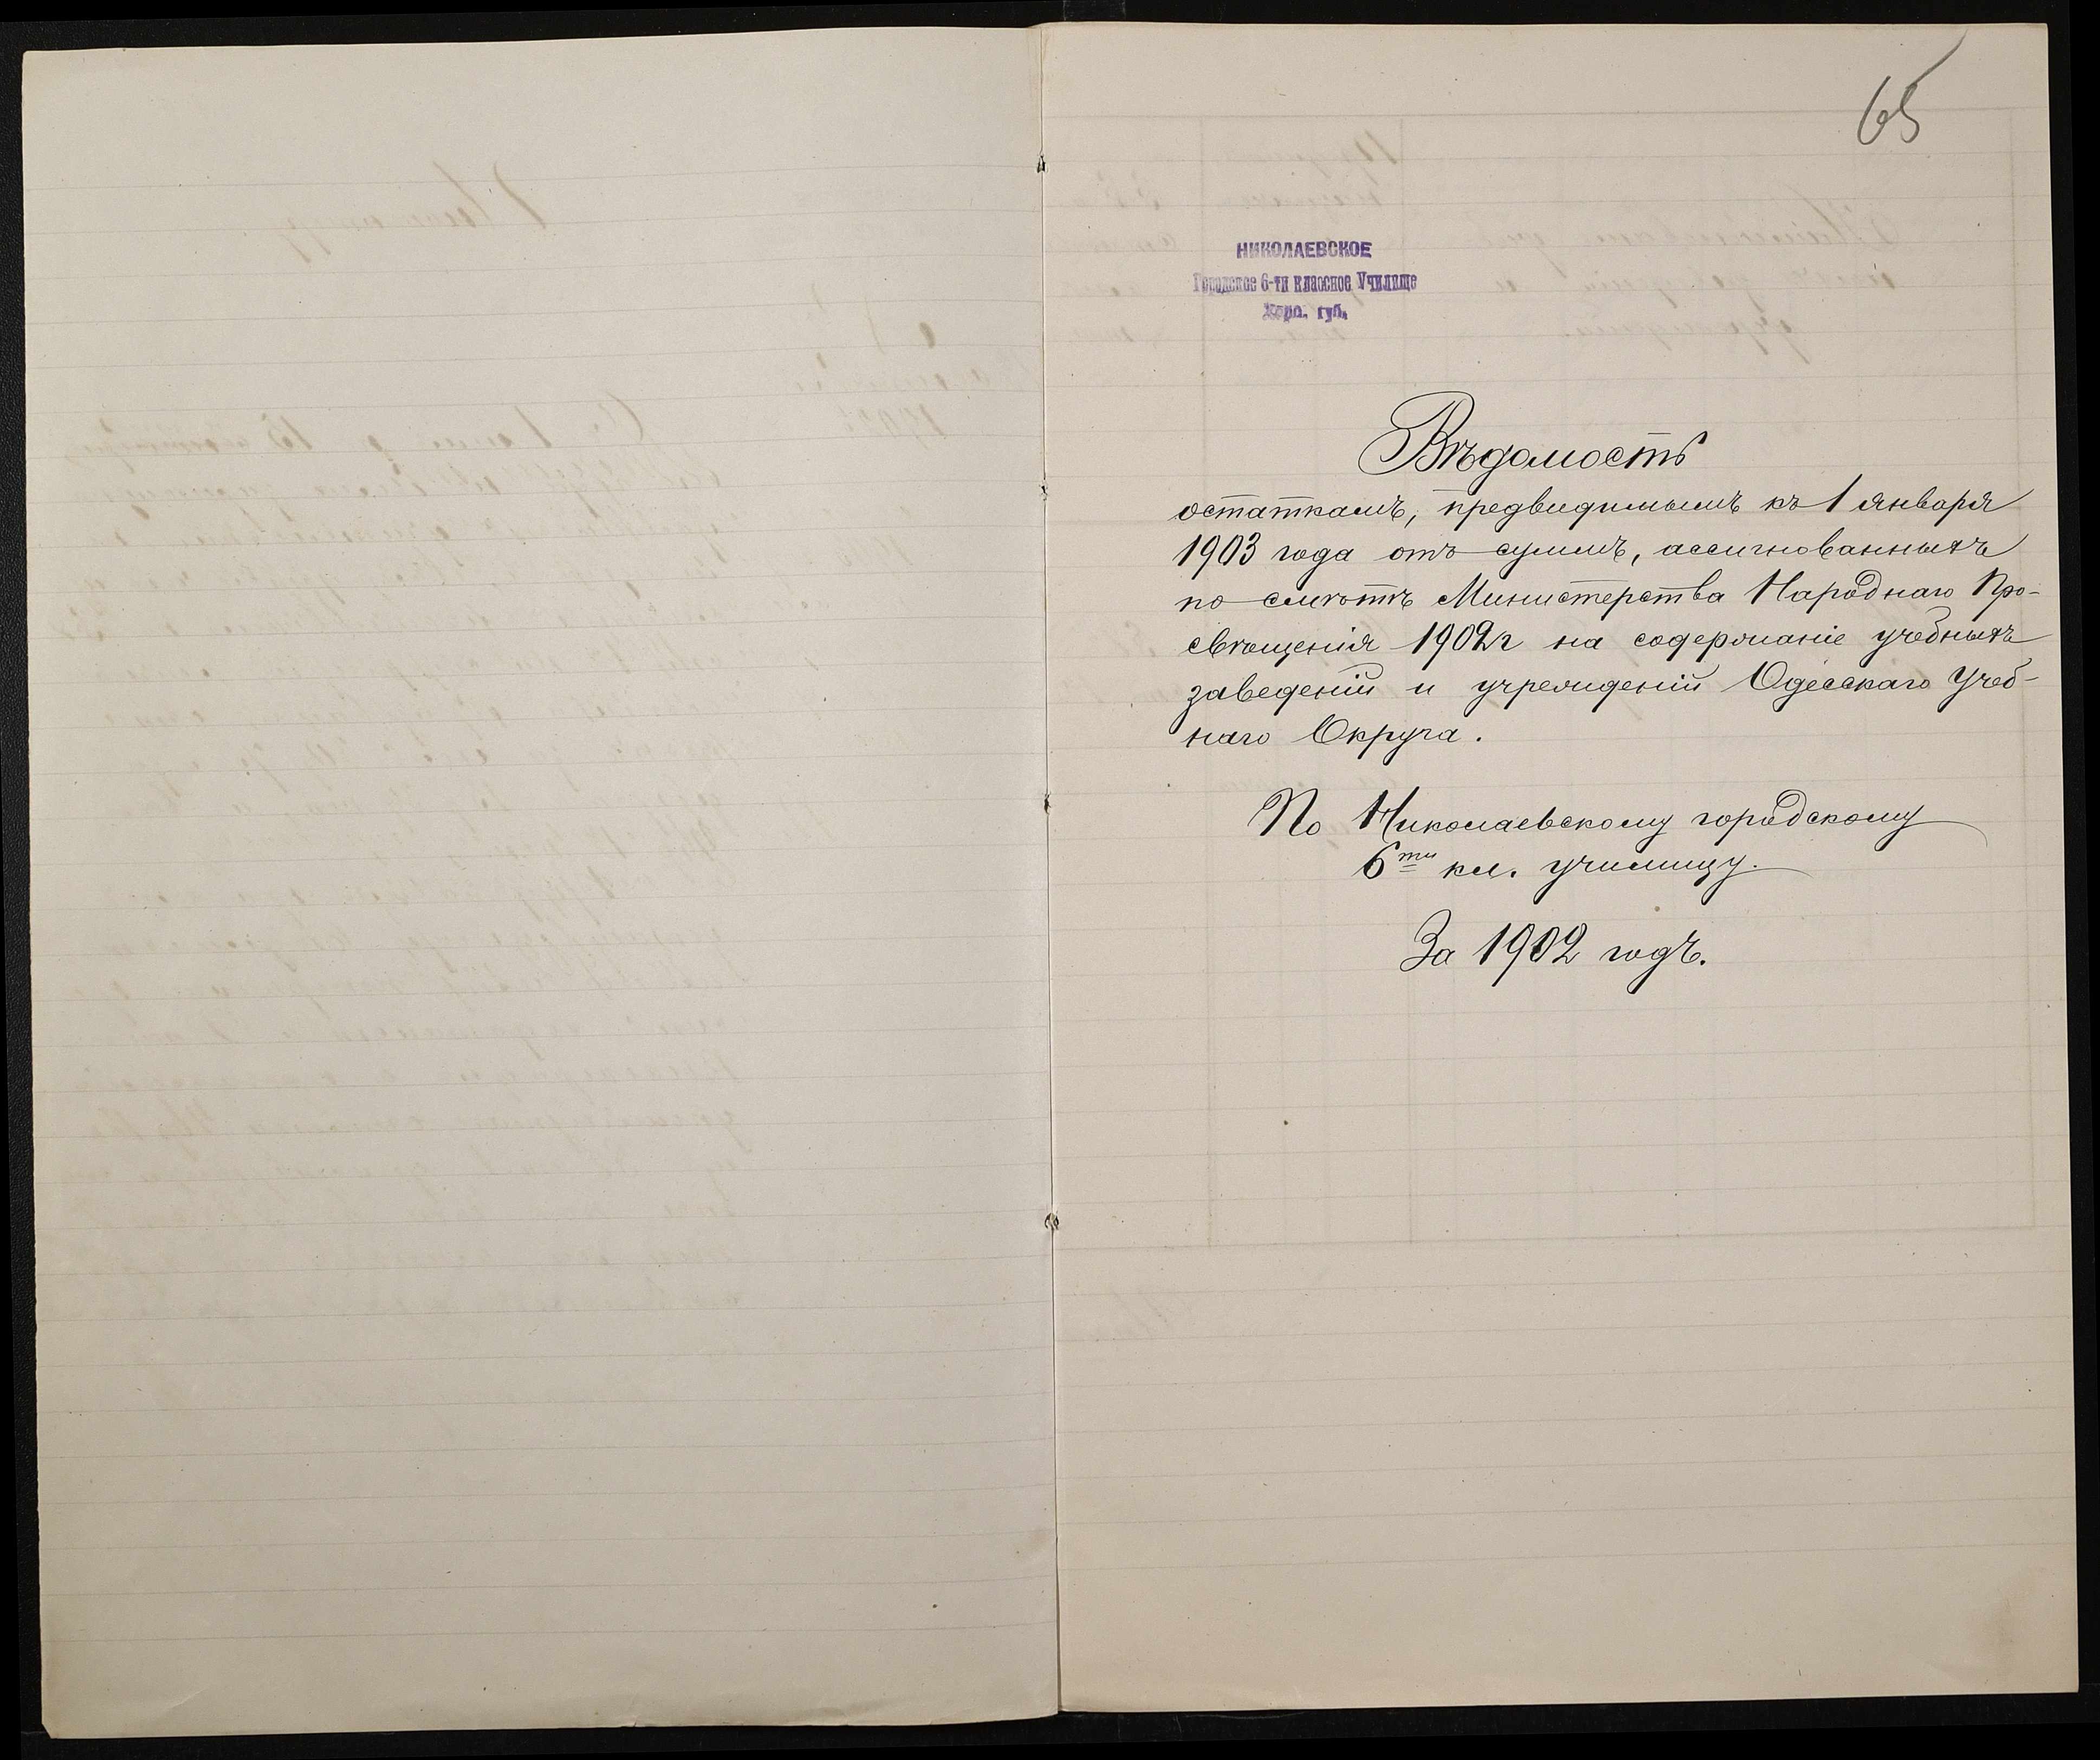 65
НИКОЛАЕВСКОЕ
Городское 6-ти классное Училище
Херс. губ.
Вѣдомость
остаткамъ, предвидимымъ къ 1 января
1903 года отъ суммъ, ассигнованныхъ
по смѣтѣ Министерства Народнаго Про-
свѣщенія 1902 г на содержаніе учебныхъ
заведеній и учрежденій Одесскаго Учеб-
наго Округа.
По Николаевскому городскому
6ти кл. училищу.
За 1902 годъ.